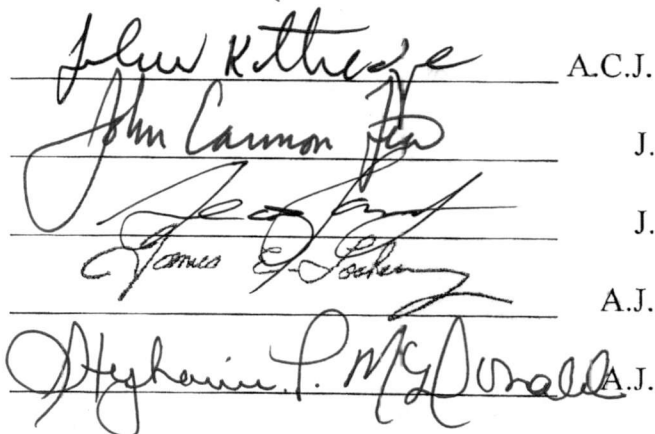 John Kittredge A.C.J.
John Cannon Few J.
J.
James E. Lockemy A.J.
Stephanie P. McDonald A.J.